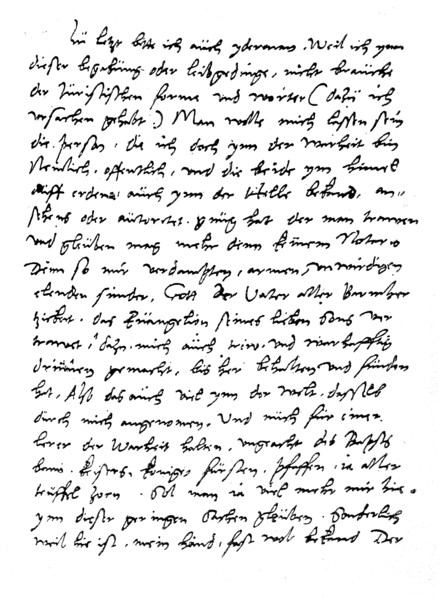 Zu letzt bitte ich auch yderman, Weil ich ynn
dieser begabung oder leibgedinge, nicht brauche
der Juristischen forme und wörter (dazu ich
ursachen gehabt) Man wolle mich lassen sein
die Person, die ich doch ynn der warheit bin
Nemlich, offentlich, und die beide ym himel
auff erden, auch ynn der helle bekand, an-
sehens oder autoritet gnug hat, der man trawen
und gleuben mag mehr denn keinem Notario
Denn so mir verdampten, armen, unwirdigen
elenden sunder, Gott der Vater aller Barmher
tzickeit, das Euangelion seines lieben Sons ver
trawet, dazu mich auch trew und warhafftig
drinnen gemacht, bis her behalten und funden
hat, Also das auch viel ynn der welt, dasselb
durch mich angenomen, Und mich fur einen
lerer der Warheit halten, ungeacht des Bapsts
bann, keisers, konige, fursten, pfaffen, ia aller
teuffel zorn, Sol man ia viel mehr mir hie
ynn dieser geringen sachen gleuben, Sonderlich
weil hie ist, mein hand, fast wol bekand Der